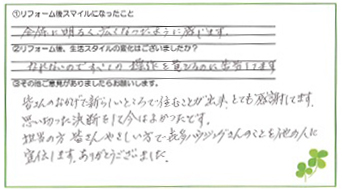 ①リフォーム後スマイルになったこと
全体に明るく広くなったように感じます。
②リフォーム後、生活スタイルの変化はございましたか？
なれないのですいっちの操作を覚えるのに苦労してます
③その他ご意見がありましたらお願いします。
皆さんのおかげで新らしいところで住むことが出来、とても感謝してます。
思い切った決断をして今はよかったです。
担当の方 皆さんやさしい方で喜多ハウジングさんのことを他の人に
宣伝します。ありがとうございました。